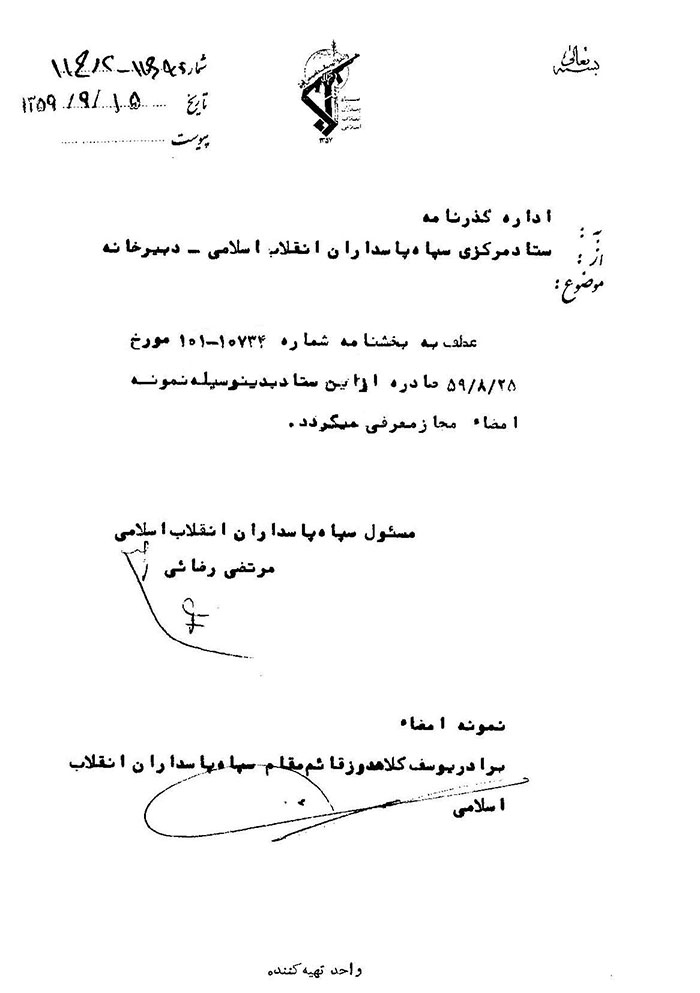 بسمه تعالی
شماره
تاریخ ۱۳۵۹/۹/۱۵
پیوست
سپاه
پاسداران
انقلاب
اسلامی
۱۳۵۷
به: اداره گذرنامه
از: ستاد مرکزی سپاه پاسداران انقلاب اسلامی - دبیرخانه
موضوع:
عطف به بخشنامه شماره ۱۰۷۳۴-۱۰۱ مورخ
۵۹/۸/۲۵ صادره از این ستاد بدینوسیله نمونه
امضاء مجاز معرفی میگردد.
مسئول سپاه پاسداران انقلاب اسلامی
مرتضی رضائی
نمونه امضاء
برادر یوسف کلاهدوز قائم مقام سپاه پاسداران انقلاب
اسلامی
واحد تهیه کننده